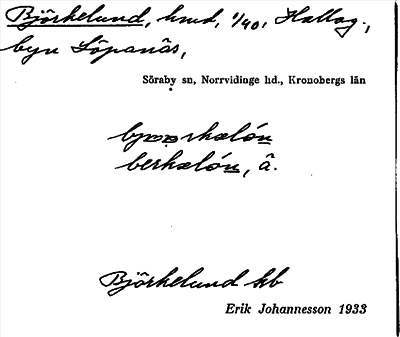 Björkelund, hmd, 1/40, Hallag.,
byn Löpanäs,
Söraby sn, Norrvidinge hd., Kronobergs län
berkælón, â.
Björkelund kb
Erik Johannesson 1933